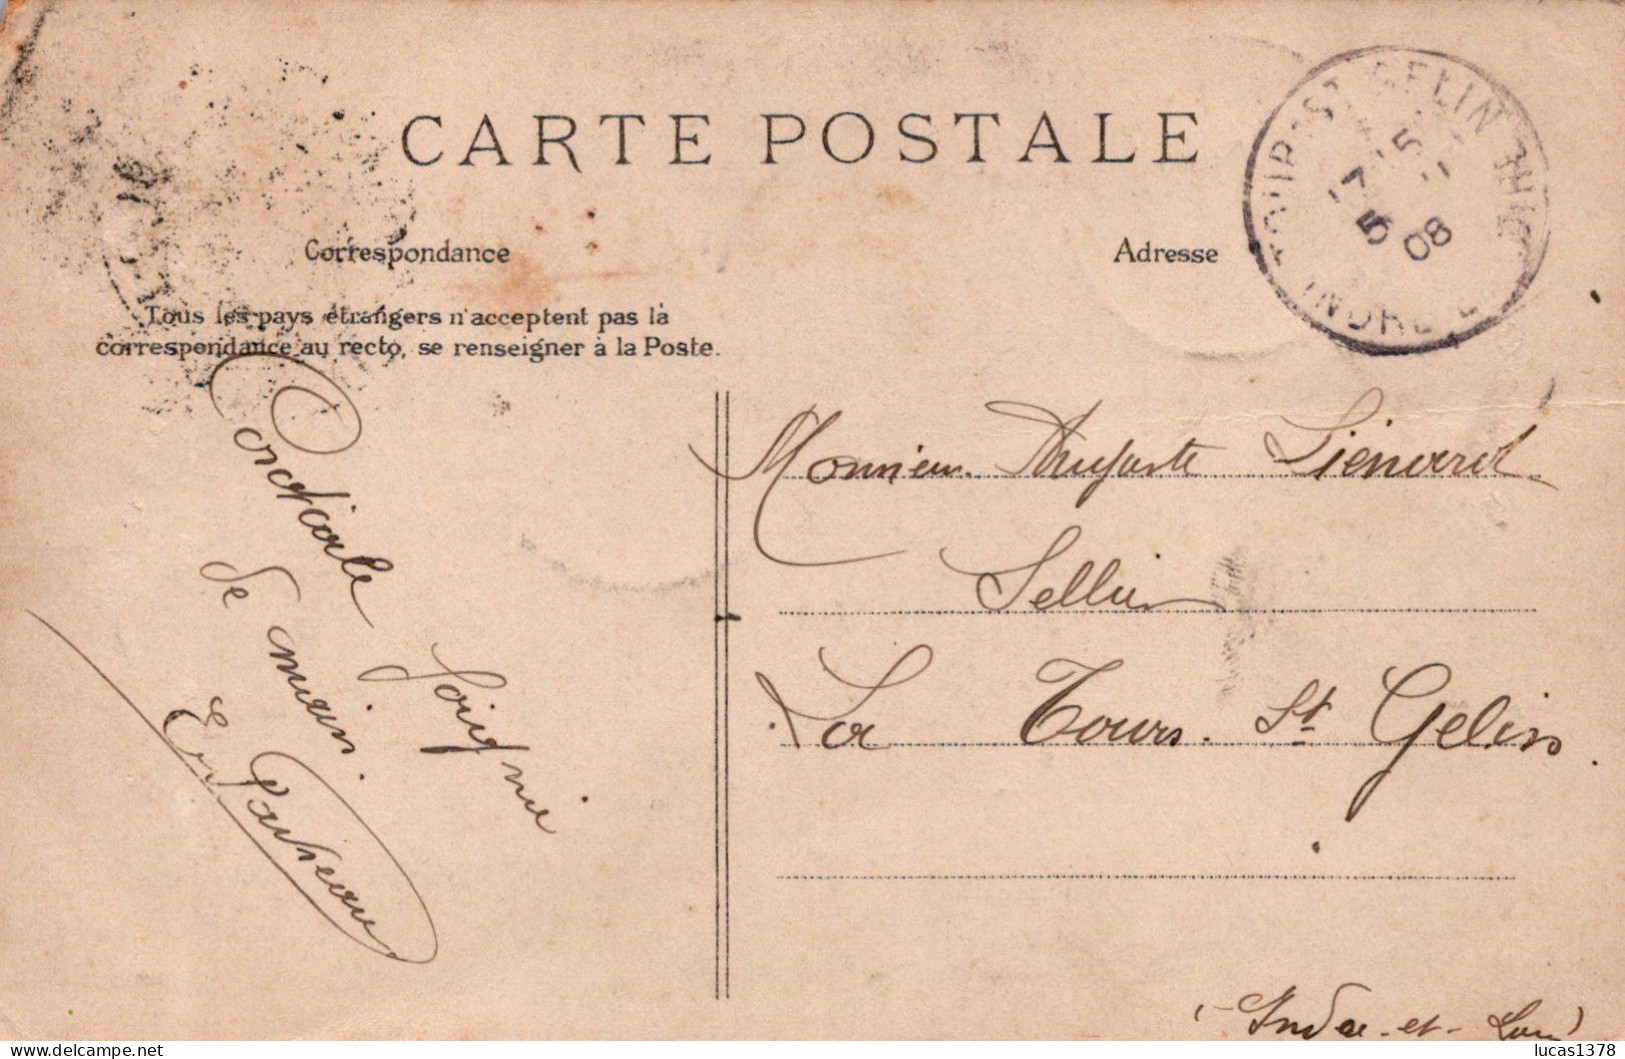 CARTE POSTALE
Correspondance
Adresse
Tous les pays étrangers n'acceptent pas la
correspondance au recto, se renseigner à la Poste.
ST GELIN
17 15
5 - 1
08
INDRE
Cordiale Poignée
de main.
Monsieur Auguste Liénard
Sellier
La Tour St Gelin
(Indre-et-Loire)
lucas1378